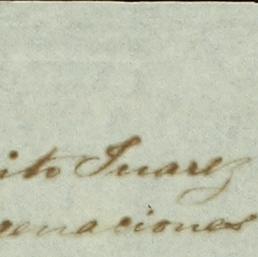 ito Juarez
genaciones